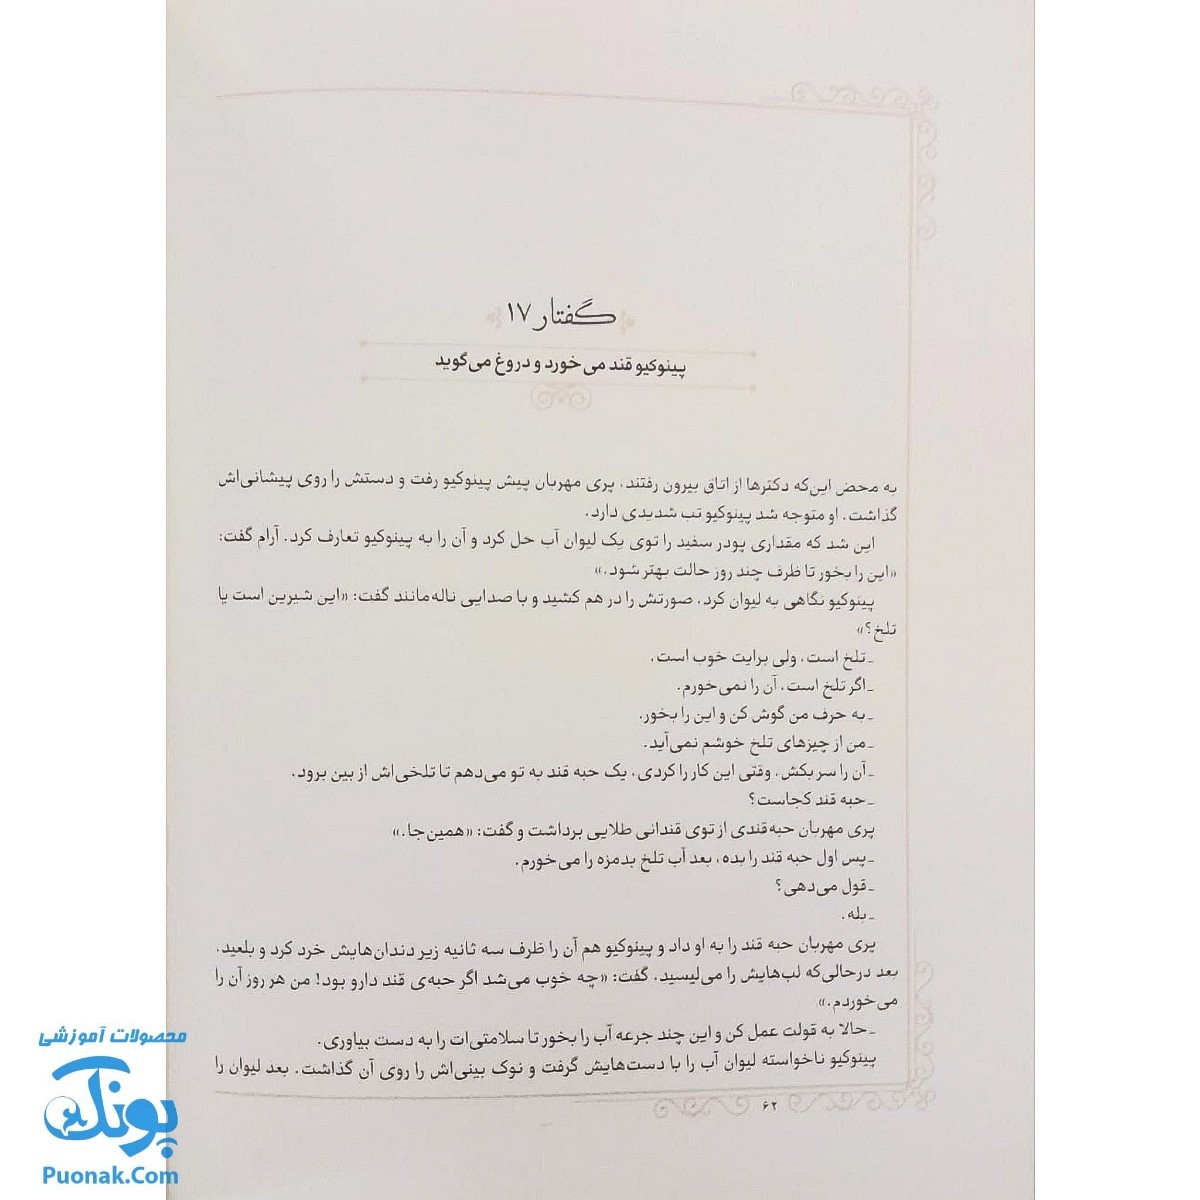 گفتار ۱۷
پینوکیو قند می‌خورد و دروغ می‌گوید
به محض این‌که دکترها از اتاق بیرون رفتند، پری مهربان پیش پینوکیو رفت و دستش را روی پیشانی‌اش
گذاشت. او متوجه شد پینوکیو تب شدیدی دارد.
این شد که مقداری پودر سفید را توی یک لیوان آب حل کرد و آن را به پینوکیو تعارف کرد. آرام گفت:
«این را بخور تا ظرف چند روز حالت بهتر شود.»
پینوکیو نگاهی به لیوان کرد، صورتش را در هم کشید و با صدایی ناله‌مانند گفت: «این شیرین است یا
تلخ؟»
ـ تلخ است، ولی برایت خوب است.
ـ اگر تلخ است، آن را نمی‌خورم.
ـ به حرف من گوش کن و این را بخور.
ـ من از چیزهای تلخ خوشم نمی‌آید.
ـ آن را سر بکش، وقتی این کار را کردی، یک حبه قند به تو می‌دهم تا تلخی‌اش از بین برود.
ـ حبه قند کجاست؟
پری مهربان حبه‌قندی از توی قندانی طلایی برداشت و گفت: «همین‌جا.»
ـ پس اول حبه قند را بده، بعد آب تلخ بدمزه را می‌خورم.
ـ قول می‌دهی؟
ـ بله.
پری مهربان حبه قند را به او داد و پینوکیو هم آن را ظرف سه ثانیه زیر دندان‌هایش خرد کرد و بلعید،
بعد درحالی‌که لب‌هایش را می‌لیسید، گفت: «چه خوب می‌شد اگر حبه‌ی قند دارو بود! من هر روز آن را
می‌خوردم.»
ـ حالا به قولت عمل کن و این چند جرعه آب را بخور تا سلامتی‌ات را به دست بیاوری.
پینوکیو ناخواسته لیوان آب را با دست‌هایش گرفت و نوک بینی‌اش را روی آن گذاشت. بعد لیوان را
۶۲
محصولات آموزشی
پونک
Puonak.Com